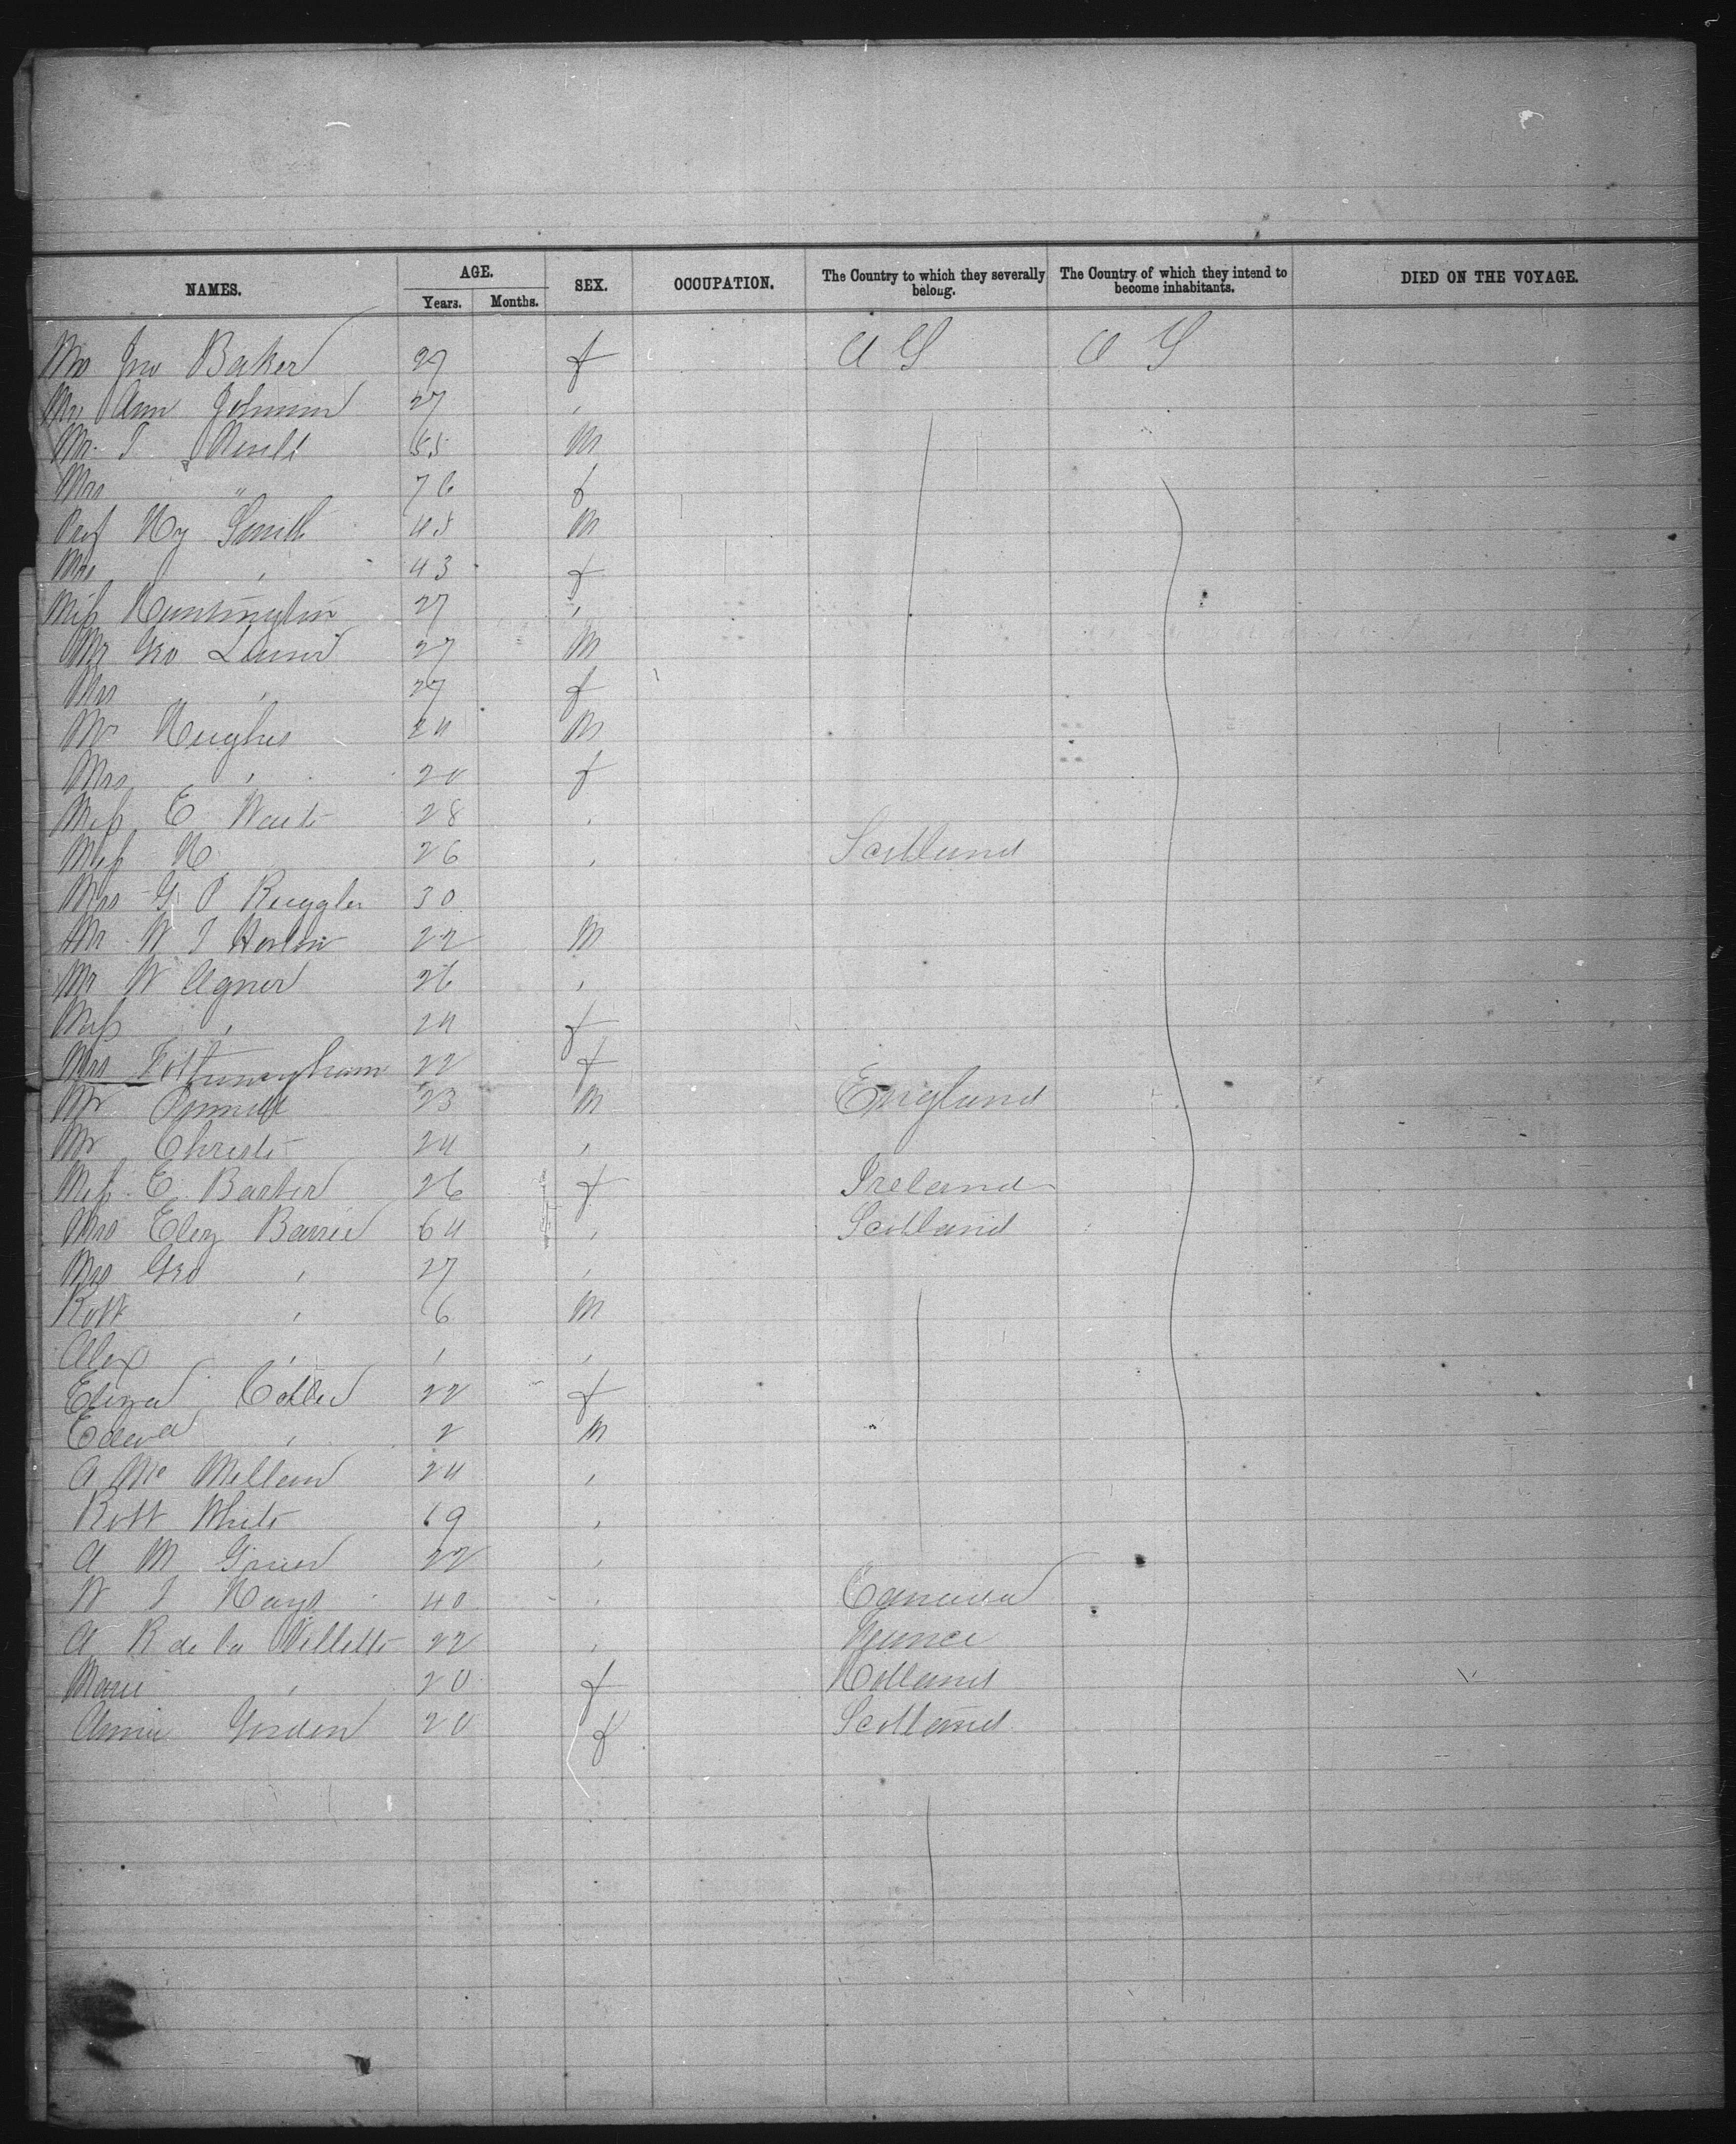 NAMES. AGE. Years. Months. SEX. OCCUPATION. The Country to which they severally belong. The Country of which they intend to become inhabitants. DIED ON THE VOYAGE.
Mrs Jno Baker 27 f U S U S
Ann Johnson 27 "
Mr. T 55 M
Mrs " 76 f
Prof Hy Smith 45 M
Mrs " 43 f
Miss Huntington 27 "
Mr Geo 27 M
Mrs " 27 f
Mr Hughes 24 M
Mrs " 20 f
Miss E 28 "
Miss H 26 " Scotland
Mrs G P Ruggles 30
Mr W J 22 M
Mr W Agner 26 "
Miss " 24 f
Mrs Fotheringham 22 f
Mr 23 M England
Mr Christie 24 "
Miss E Barber 26 f Ireland
Mrs Eliz Barrie 64 " Scotland
Mrs Geo " 27 "
Robt " 6 M
Alex " " "
22 f
Edwd " 2 M
A Mc Millan 24 "
Robt White 19 "
A M Grier 22 "
W J Hays 40 " Canada
A R de la Villette 22 " France
Marie " 20 f Holland
Annie Gordon 20 f Scotland